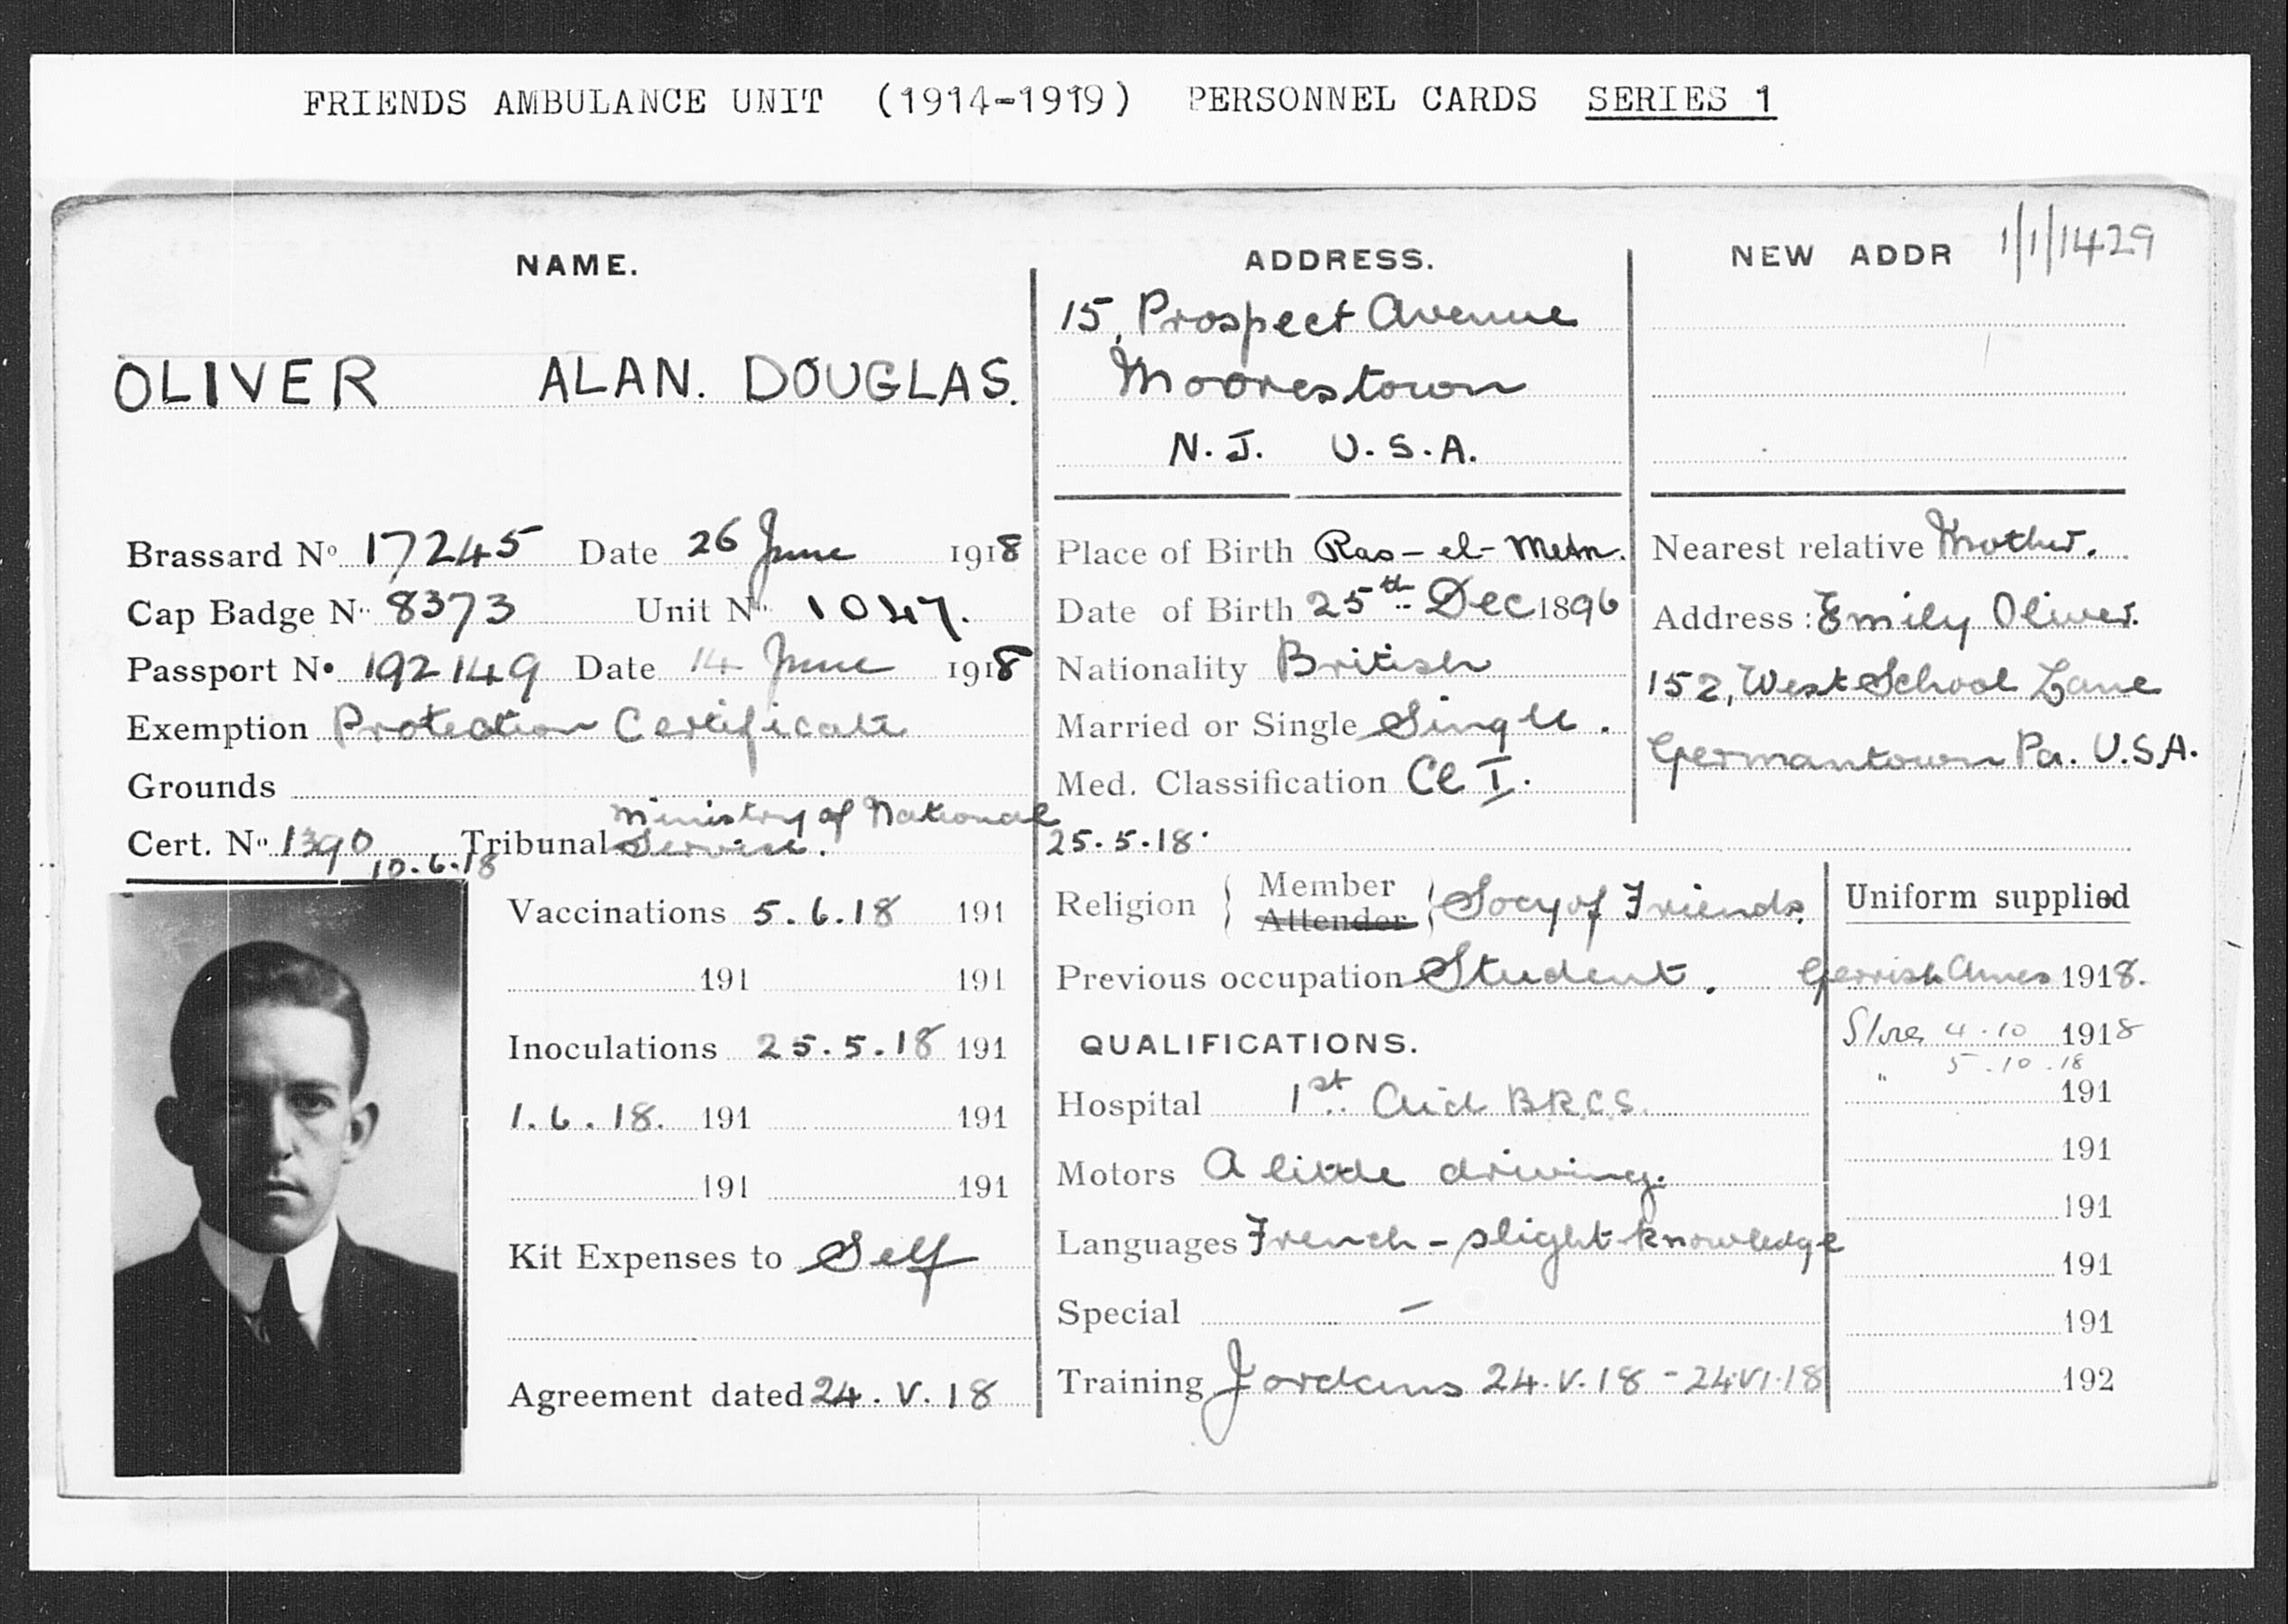 FRIENDS AMBULANCE UNIT (1914-1919) PERSONNEL CARDS SERIES 1
NAME.
OLIVER ALAN. DOUGLAS.
Brassard No 17245 Date 26 June 1918
Cap Badge No 8373 Unit No 1047.
Passport No 192149 Date 14 June 1918
Exemption Protection Certificate
Grounds
Cert. No 1390 10.6.18 Tribunal Ministry of National Service. 25.5.18.
ADDRESS.
15, Prospect Avenue
Moorestown
N.J. U.S.A.
NEW ADDR 1/1/1429
Place of Birth Ras-el-Metn.
Date of Birth 25th Dec 1896
Nationality British
Married or Single Single.
Med. Classification Cl I.
Nearest relative Mother.
Address: Emily Oliver.
152, West School Lane
Germantown Pa. U.S.A.
Vaccinations 5.6.18 191
191 191
Inoculations 25.5.18 191
1.6.18. 191 191
191 191
Kit Expenses to Self
Agreement dated 24.V.18
Religion { Member Attender } Socy of Friends.
Previous occupation Student.
QUALIFICATIONS.
Hospital 1st Aid B.R.C.S.
Motors A little driving.
Languages French - slight knowledge
Special —
Training Jordans 24.V.18 - 24.VI.18
Uniform supplied
Gerrish Ames 1918.
Stores 4.10 1918
" 5.10.18 191
191
191
191
191
192